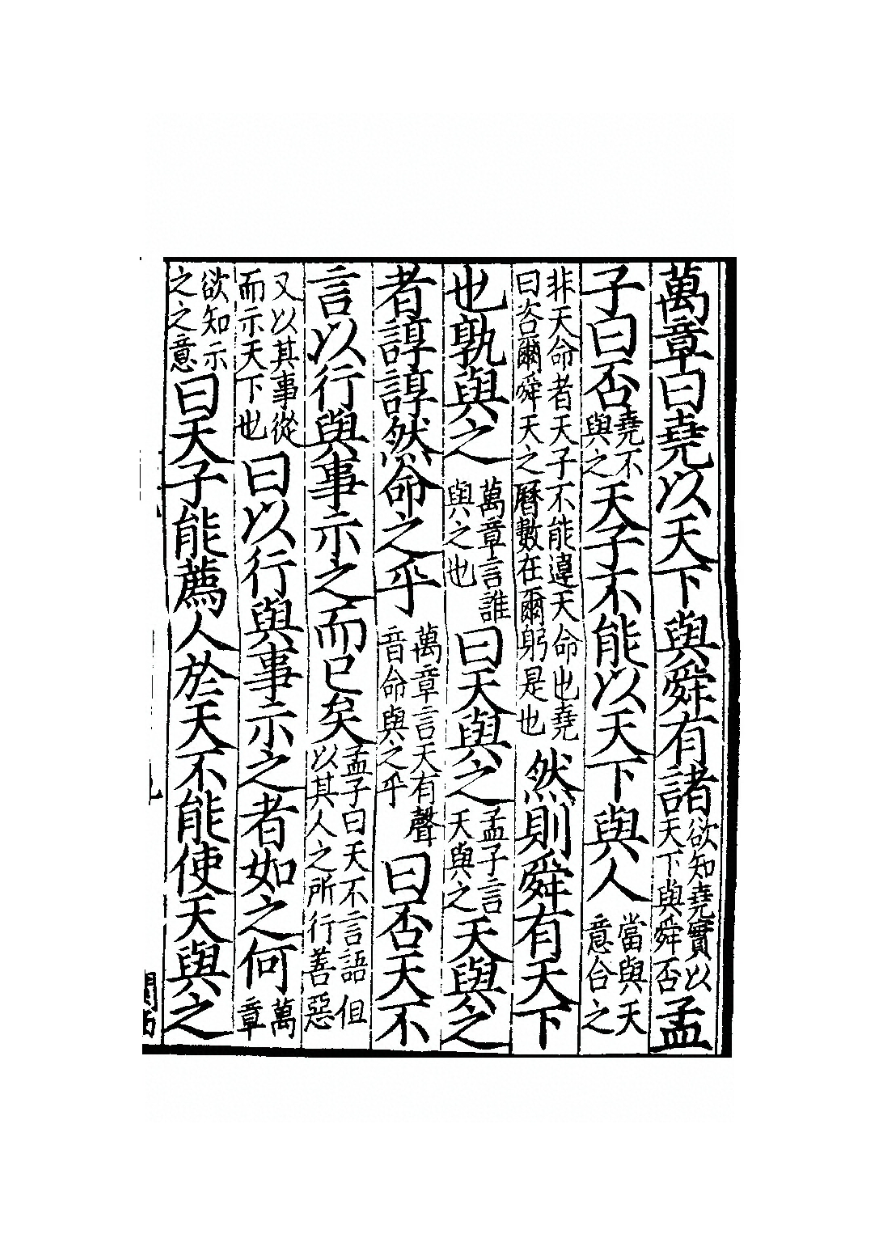 萬章曰堯以天下與舜有諸欲知堯實以天下與舜否孟
子曰否堯不與之天子不能以天下與人當與天意合之
非天命者天子不能違天命也堯曰咨爾舜天之曆數在爾躬是也然則舜有天下
也孰與之萬章言誰與之也曰天與之孟子言天與之天與之
者諄諄然命之乎萬章言天有聲音命與之乎曰否天不
言以行與事示之而已矣孟子曰天不言語但以其人之所行善惡
又以其事從而示天下也曰以行與事示之者如之何萬章
欲知示之之意曰天子能薦人於天不能使天與之